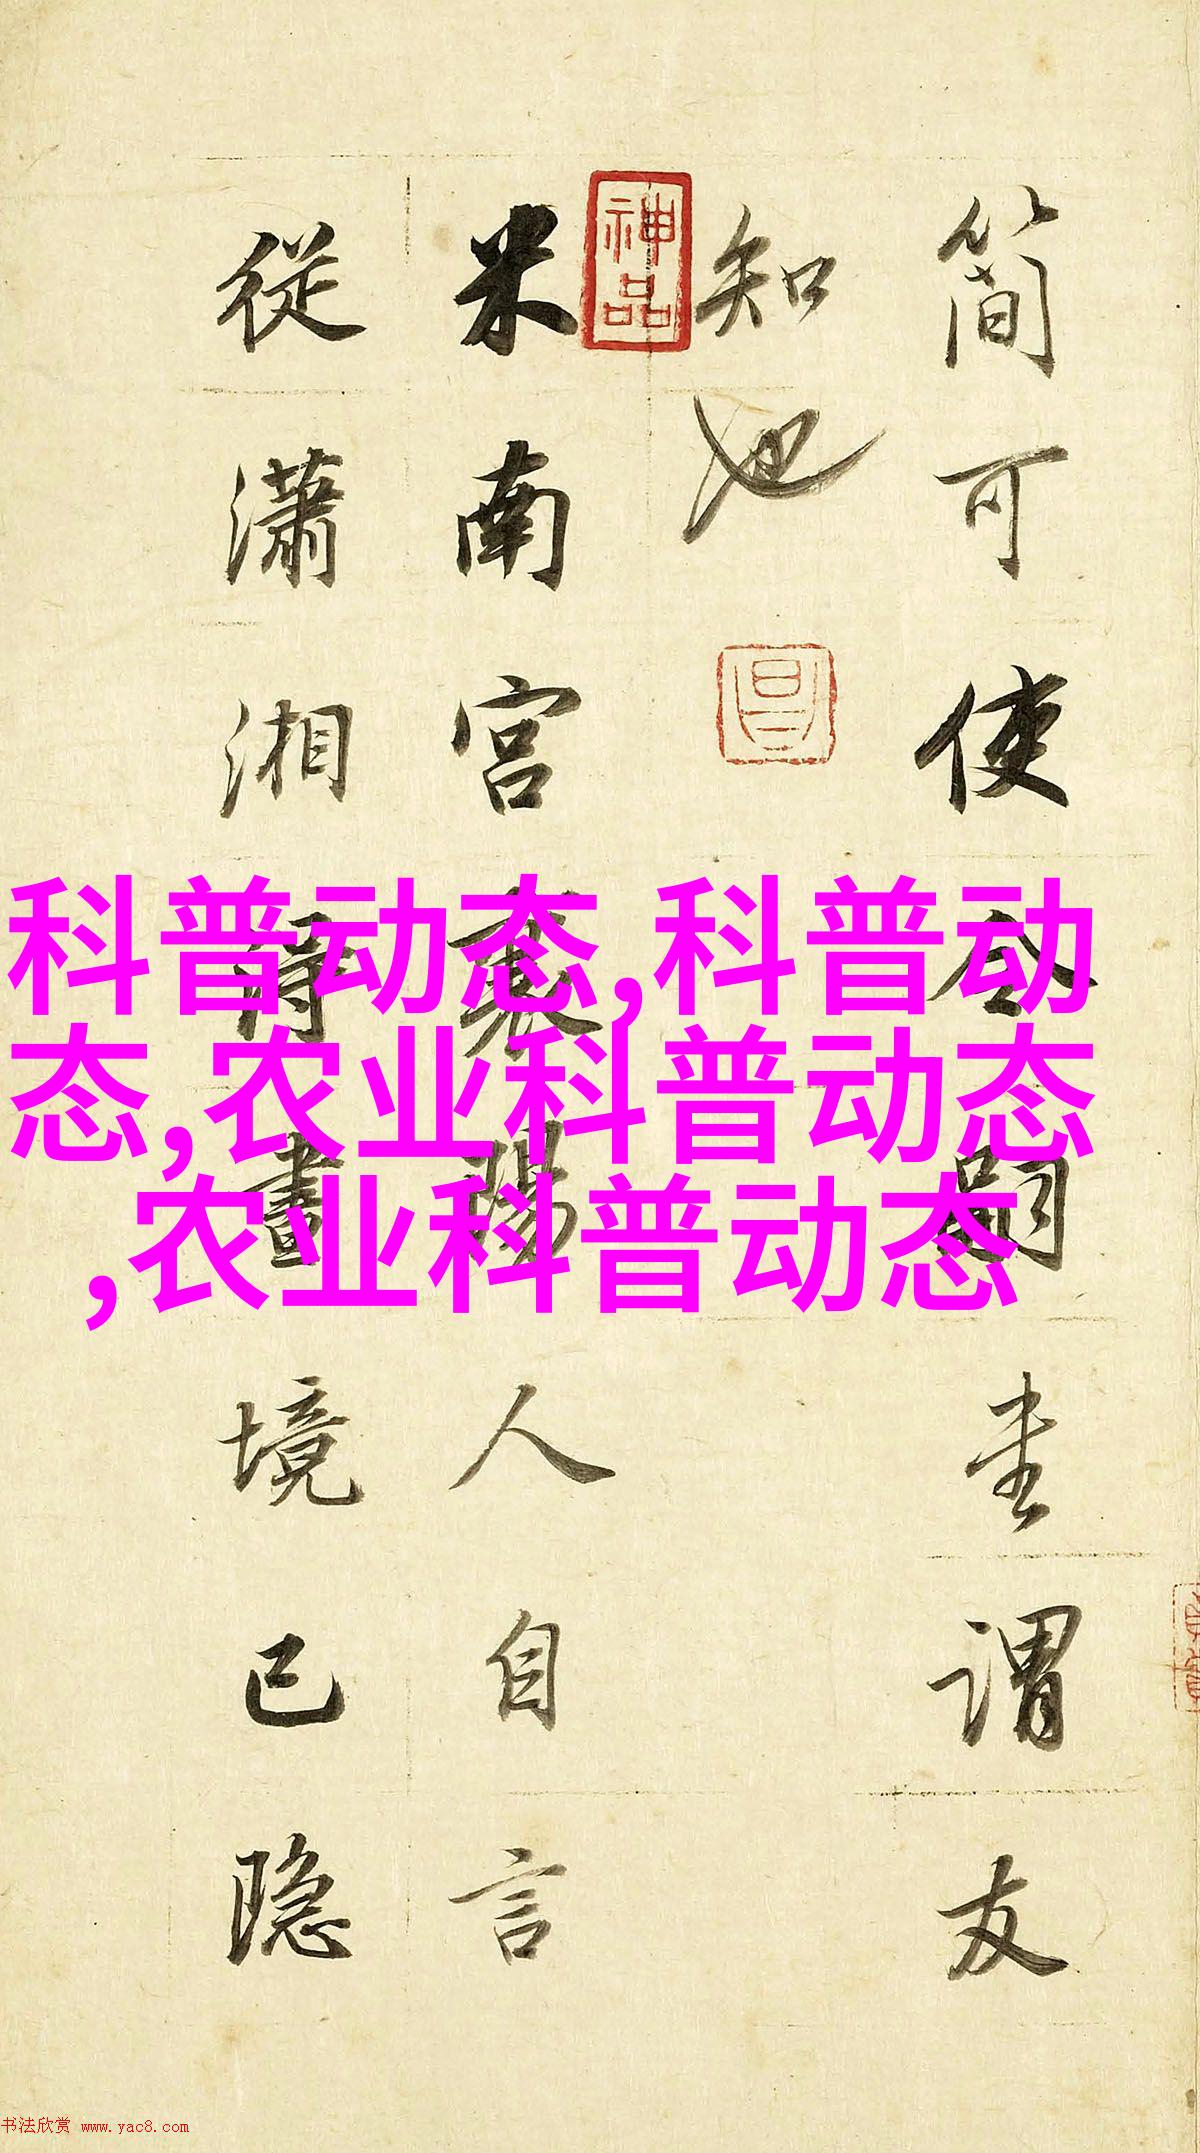 簡可使令嗣謂友
知也
昌
神品
米南宮襄陽人自言
從瀟湘得畫境已隱
科普动态,科普动
态,农业科普动态
,农业科普动态
书法欣赏 www.yac8.com